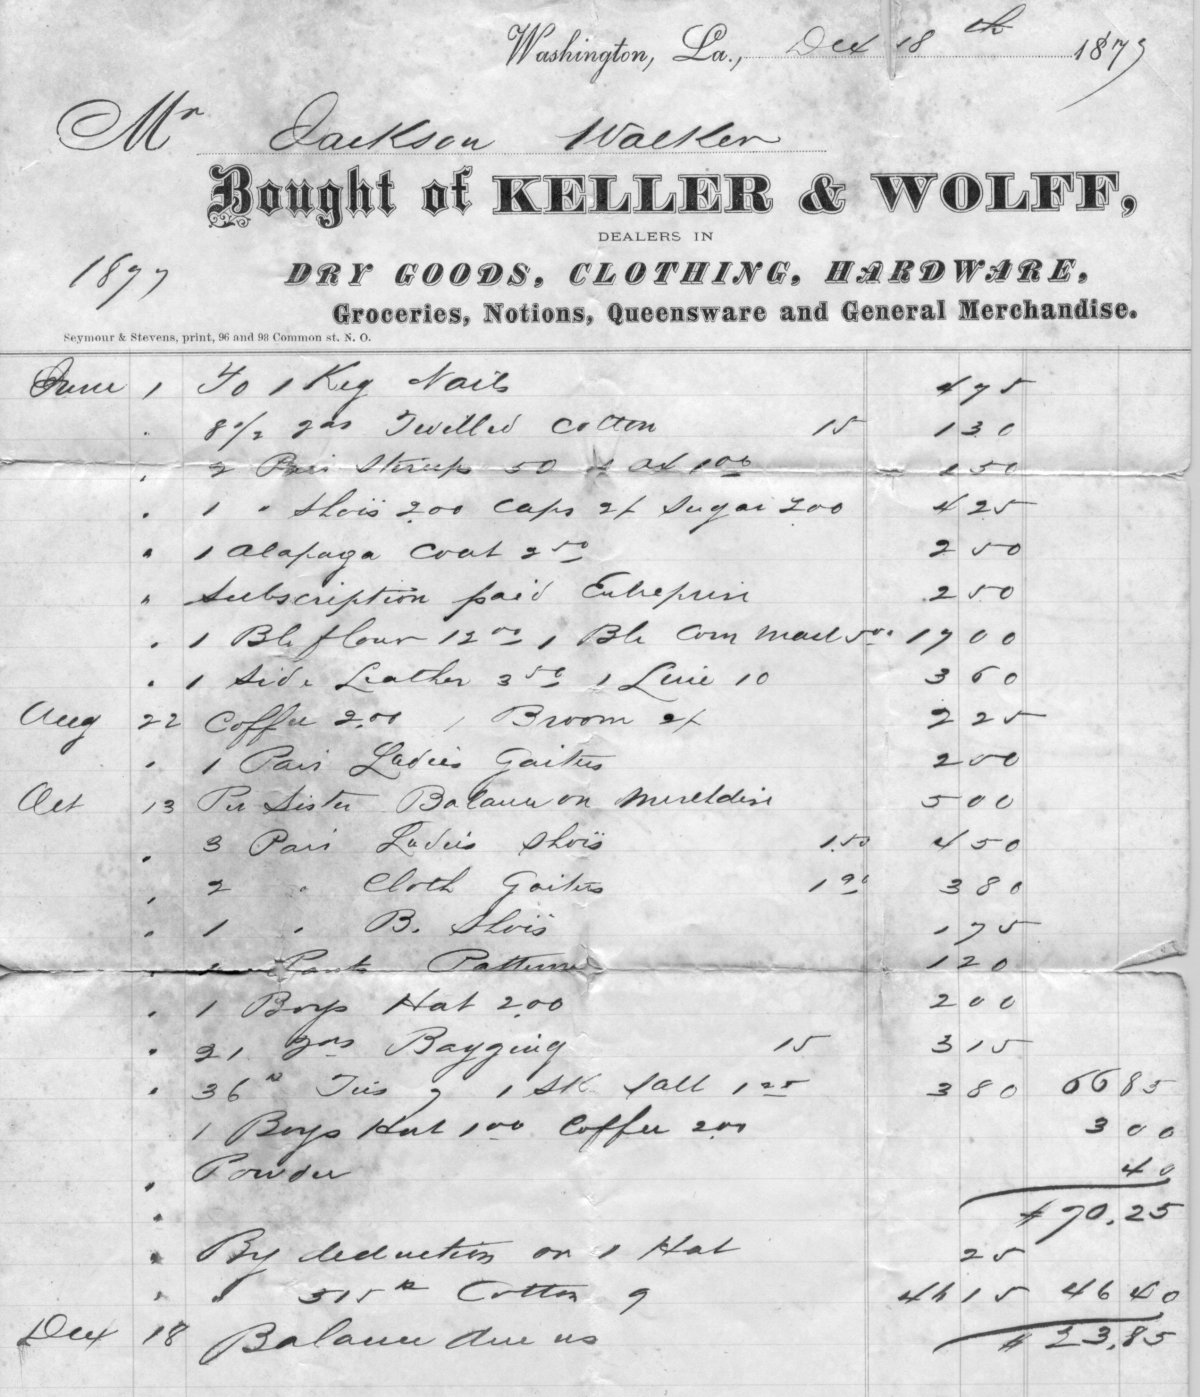 Washington, La., Dec 18th 1877
Mr Jackson Walker
Bought of KELLER & WOLFF,
DEALERS IN
1877 DRY GOODS, CLOTHING, HARDWARE,
Groceries, Notions, Queensware and General Merchandise.
Seymour & Stevens, print, 96 and 98 Common st. N. O.
June 1 To 1 Keg Nails 4 75
" 8 1/2 yds Twilled Cotton 15 1 30
" 2 Pair Stirups 50 ax 1 00 1 50
" 1 " Shois 2.00 Caps 25 Sugar 2.00 4 25
" 1 Alapaga Coat 2 50 2 50
" Subscription paid Enteprise 2 50
" 1 Bbl flour 12 00 1 Bbl Corn Meal 5 00 17 00
" 1 Side Leather 3 50 1 Line 10 3 60
Aug 22 Coffee 2.00 1 Broom 25 2 25
" 1 Pair Ladies Gaiters 2 00
Oct 13 Per Sister Balance on 5 00
" 3 Pair Ladies Shois 1.50 4 50
" 2 " Cloth Gaiters 1 90 3 80
" 1 " B. Shois 1 75
" 1 Pants Patterne 1 20
" 1 Boys Hat 2.00 2 00
" 21 yds Bagging 15 3 15
" 36 lb Ties 7 1 SK Salt 1 25 3 80 66 85
1 Boys Hat 1 00 Coffee 2.00 3 00
" Powder 40
" $70.25
" By deduction on 1 Hat 25
" " 515 lb Cotton 9 46 15 46 40
Dec 18 Balance due us $23.85